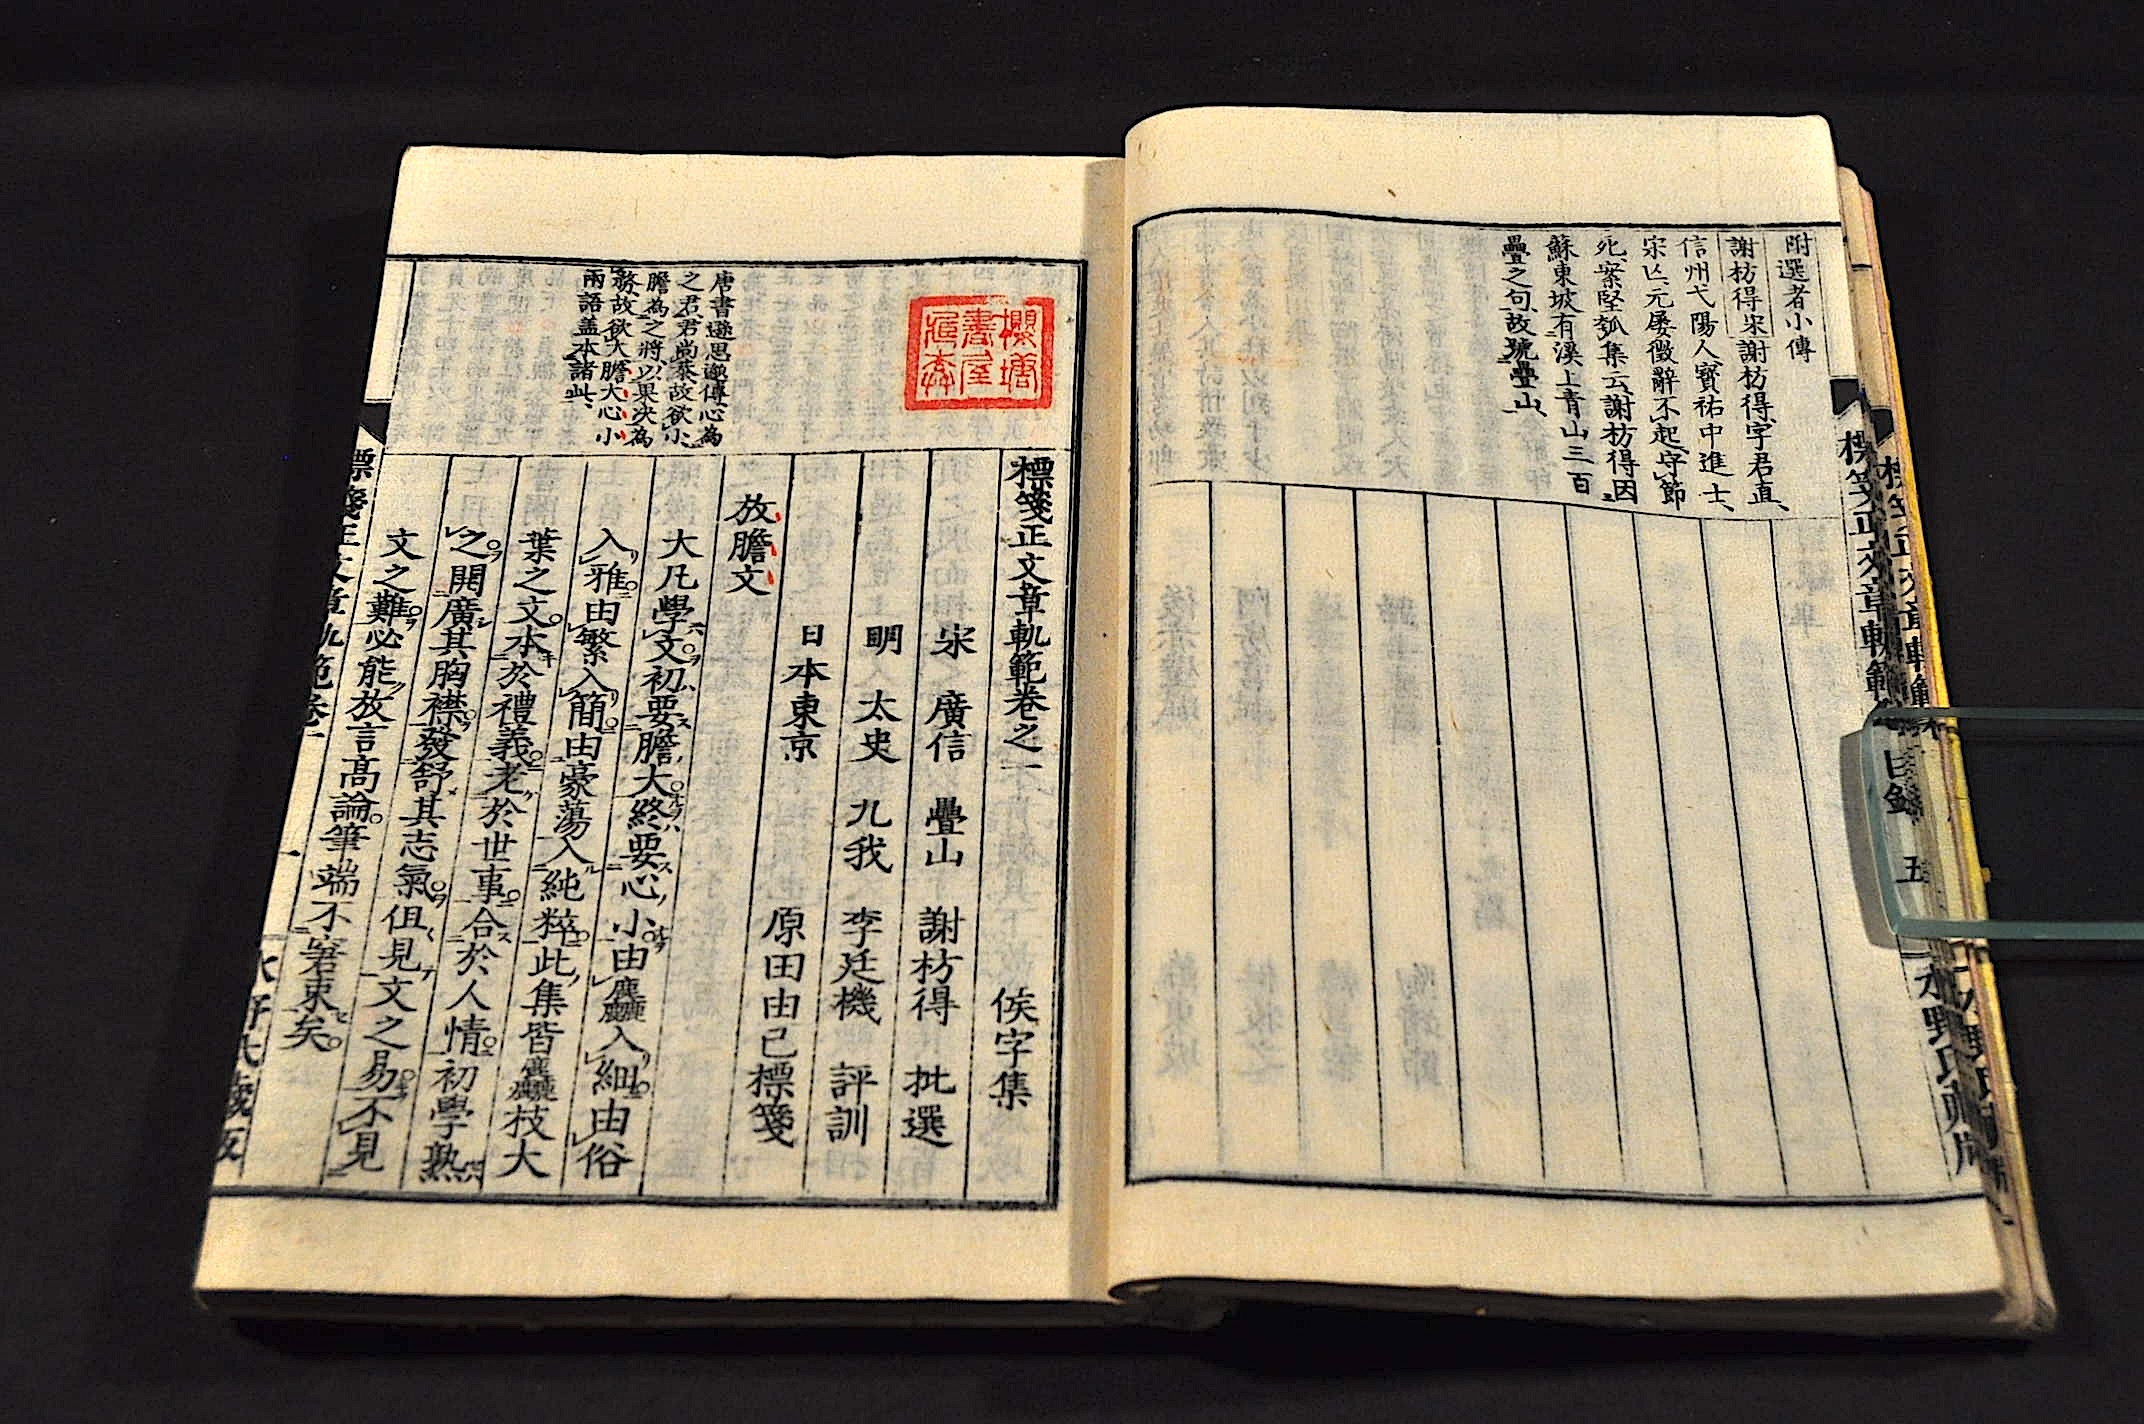 附選者小傳
謝枋得宋謝枋得字君直、
信州弋陽人寶祐中進士、
宋亡元屢徵辭不起守節
死案堅瓠集云謝枋得因
蘇東坡有溪上青山三百
疊之句故號疊山、
標箋正文章軌範卷之一　侯字集
宋　廣信　疊山　謝枋得　批選
明　太史　九我　李廷機　評訓
日本東京　原田由己標箋
唐書遜思邈傳心為
之君君尚恭故欲小
膽為之將以果決為
務故欲大膽大心小
兩語盖本諸此、
放膽文
大凡學文初要膽大終要心小由麤入細由俗
入雅由繁入簡由豪蕩入純粹此集皆麤枝大
葉之文本於禮義老於世事合於人情初學熟
之開廣其胸襟發舒其志氣但見文之易不見
文之難必能放言高論筆端不窘束矣